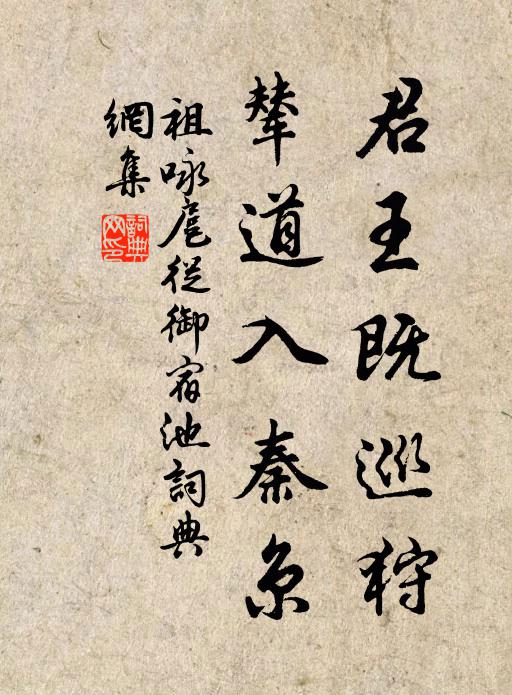 君王既巡狩
輦道入秦京
祖咏扈從御宿池詞典
網集
詞典網印